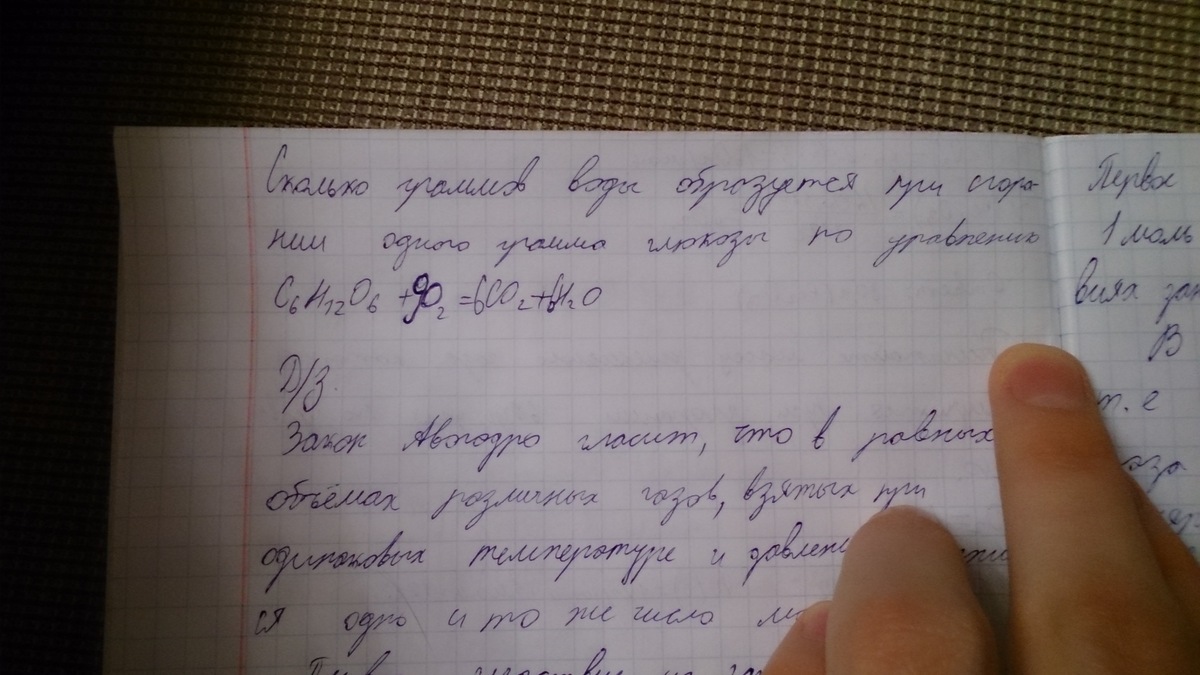 Сколько граммов воды образуется при сгора-
нии одного грамма глюкозы по уравнению
C₆H₁₂O₆ + 9O₂ = 6CO₂ + 6H₂O
Д/З.
Закон Авогадро гласит, что в равных
объёмах различных газов, взятых при
одинаковых температуре и
ся одно и то же число
Первое
1 моль
виях
В
т. е